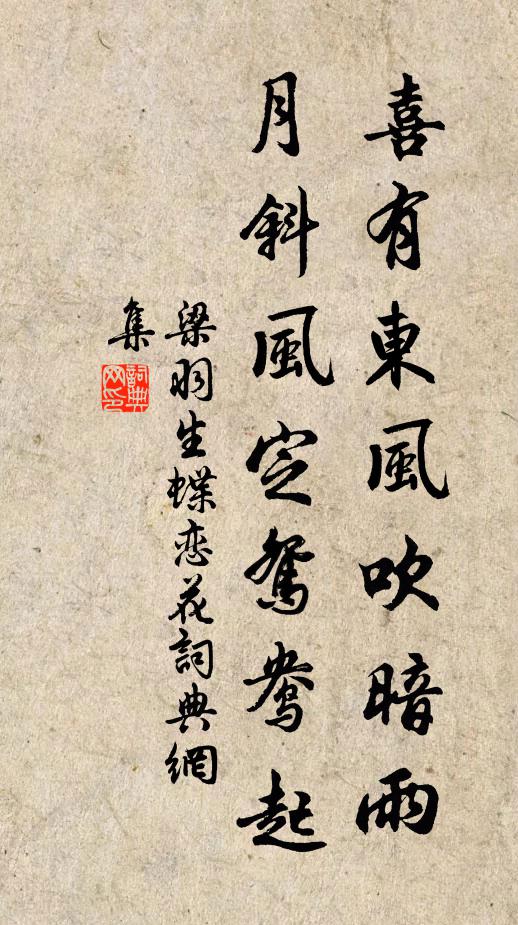 喜有東風吹暗雨
月斜風定鴛鴦起
梁羽生蝶恋花詞典網
集
詞典
网印